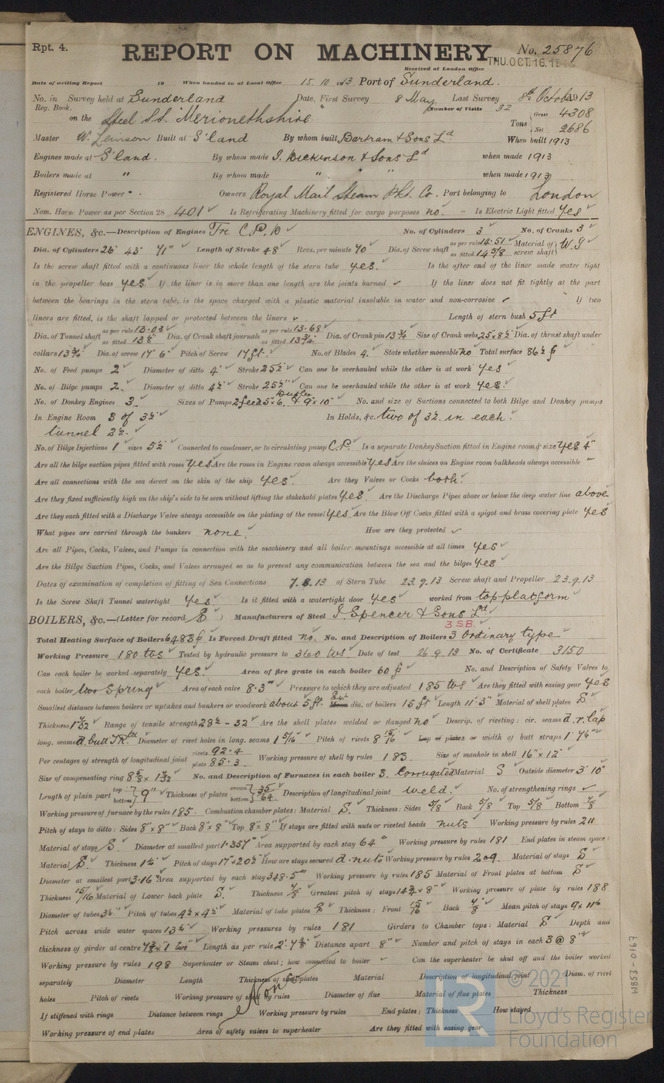 Rpt. 4.
REPORT ON MACHINERY.
No. 25876
Received at London Office
THU. OCT. 16. 19
Date of writing Report 19 When handed in at Local Office 15. 10. 13 Port of Sunderland.
No. in Reg. Book. Survey held at Sunderland Date, First Survey 8 May Last Survey 8th October 1913
Number of Visits 32
on the Steel S.S. Merionethshire Tons Gross 4308 Net 2686
Master W. Built at S'land By whom built Bartram & Sons Ld When built 1913
Engines made at S'land. By whom made J. Dickinson & Sons Ld when made 1913
Boilers made at " By whom made " " " when made 1913
Registered Horse Power Owners Royal Mail Steam Pkt. Co. Port belonging to London
Nom. Horse Power as per Section 28 401 Is Refrigerating Machinery fitted for cargo purposes no. Is Electric Light fitted Yes
ENGINES, &c.—Description of Engines Tri. No. of Cylinders 3 No. of Cranks 3
Dia. of Cylinders 26" 45" 71" Length of Stroke 48" Revs. per minute 70 Dia. of Screw shaft as per rule 14.51 as fitted 14 7/8 Material of screw shaft W.I
Is the screw shaft fitted with a continuous liner the whole length of the stern tube yes. Is the after end of the liner made water tight
in the propeller boss yes If the liner is in more than one length are the joints burned If the liner does not fit tightly at the part
between the bearings in the stern tube, is the space charged with a plastic material insoluble in water and non-corrosive If two
liners are fitted, is the shaft lapped or protected between the liners Length of stern bush 5 ft
Dia. of Tunnel shaft as per rule 13.03 as fitted 13 1/2 Dia. of Crank shaft journals as per rule 13.68 as fitted 13 3/4 Dia. of Crank pin 13 3/4 Size of Crank webs 25 x 8 1/2 Dia. of thrust shaft under
collars 13 3/4 Dia. of screw 17' 6" Pitch of Screw 17 ft. No. of Blades 4. State whether moveable no Total surface 86 1/2 f
No. of Feed pumps 2 Diameter of ditto 4" Stroke 25 1/2" Can one be overhauled while the other is at work yes
No. of Bilge pumps 2 Diameter of ditto 4 1/2" Stroke 25 1/2" Can one be overhauled while the other is at work yes.
No. of Donkey Engines 3. Sizes of Pumps No. and size of Suctions connected to both Bilge and Donkey pumps
In Engine Room 3 of 3 1/2 In Holds, &c. two of 3 1/2 in each.
tunnel 2 1/2.
No. of Bilge Injections 1 sizes 5 1/2" Connected to condenser, or to circulating pump C.P. Is a separate Donkey Suction fitted in Engine room & size yes 4"
Are all the bilge suction pipes fitted with roses yes Are the roses in Engine room always accessible yes Are the sluices on Engine room bulkheads always accessible
Are all connections with the sea direct on the skin of the ship yes Are they Valves or Cocks both.
Are they fixed sufficiently high on the ship's side to be seen without lifting the stokehold plates yes. Are the Discharge Pipes above or below the deep water line above
Are they each fitted with a Discharge Valve always accessible on the plating of the vessel yes Are the Blow Off Cocks fitted with a spigot and brass covering plate yes
What pipes are carried through the bunkers none. How are they protected
Are all Pipes, Cocks, Valves, and Pumps in connection with the machinery and all boiler mountings accessible at all times yes
Are the Bilge Suction Pipes, Cocks, and Valves arranged so as to prevent any communication between the sea and the bilges yes
Dates of examination of completion of fitting of Sea Connections 7.8.13 of Stern Tube 23.9.13 Screw shaft and Propeller 23.9.13
Is the Screw Shaft Tunnel watertight yes Is it fitted with a watertight door yes worked from top platform
BOILERS, &c.—(Letter for record S) Manufacturers of Steel J. Spencer & Sons Ld
3 SB
Total Heating Surface of Boilers 6483 f Is Forced Draft fitted no. No. and Description of Boilers 3 Ordinary type
Working Pressure 180 lbs Tested by hydraulic pressure to 360 lbs Date of test 26.9.13 No. of Certificate 3150
Can each boiler be worked separately yes. Area of fire grate in each boiler 60 f No. and Description of Safety Valves to
each boiler two Spring Area of each valve 8.3" Pressure to which they are adjusted 185 lbs Are they fitted with easing gear yes
Smallest distance between boilers or uptakes and bunkers or woodwork about 5 ft. dia. of boilers 15 ft Length 11' 3" Material of shell plates S
Thickness Range of tensile strength 28 1/2 - 32 Are the shell plates welded or flanged no. Descrip. of riveting: cir. seams d.r. lap
long. seams d. butt TR Diameter of rivet holes in long. seams 1 5/16" Pitch of rivets Lap of plates or width of butt straps
Per centages of strength of longitudinal joint rivets 92.4 plates 85.3 Working pressure of shell by rules 183 Size of manhole in shell 16" x 12"
Size of compensating ring No. and Description of Furnaces in each boiler 3. Corrugated Material S Outside diameter 3' 10"
Length of plain part top bottom 9" Thickness of plates crown bottom 35/64 Description of longitudinal joint weld. No. of strengthening rings
Working pressure of furnace by the rules 185. Combustion chamber plates: Material S. Thickness: Sides 5/8" Back 5/8" Top 5/8" Bottom
Pitch of stays to ditto: Sides 8" x 8" Back 8" x 8" Top 8" x 8" If stays are fitted with nuts or riveted heads nuts Working pressure by rules 211
Material of stays S. Diameter at smallest part 1.357" Area supported by each stay 64" Working pressure by rules 181 End plates in steam space:
Material S. Thickness Pitch of stays 17" x 20 1/2" How are stays secured d. nuts Working pressure by rules 209. Material of stays S
Diameter at smallest part 3.16" Area supported by each stay 348.5" Working pressure by rules 185 Material of Front plates at bottom S
Thickness 15/16" Material of Lower back plate S. Thickness Greatest pitch of stays Working pressure of plate by rules 188
Diameter of tubes 3 1/2" Pitch of tubes 4 1/2 x 4 1/2" Material of tube plates S Thickness: Front Back Mean pitch of stays 9 x 11"
Pitch across wide water spaces 13 1/2" Working pressures by rules 181 Girders to Chamber tops: Material S Depth and
thickness of girder at centre Length as per rule 2' 7 1/2" Distance apart 8" Number and pitch of stays in each 3 @ 8"
Working pressure by rules 198 Superheater or Steam chest; how connected to boiler Can the superheater be shut off and the boiler worked
separately Diameter Length Thickness of shell plates Material Description of longitudinal joint Diam. of rivet
holes Pitch of rivets Working pressure of shell by rules Diameter of flue Material of flue plates Thickness
None
If stiffened with rings Distance between rings Working pressure by rules End plates: Thickness How stayed
Working pressure of end plates Area of safety valves to superheater Are they fitted with easing gear
W853-0167
© 2021
LR
Lloyd's Register
Foundation